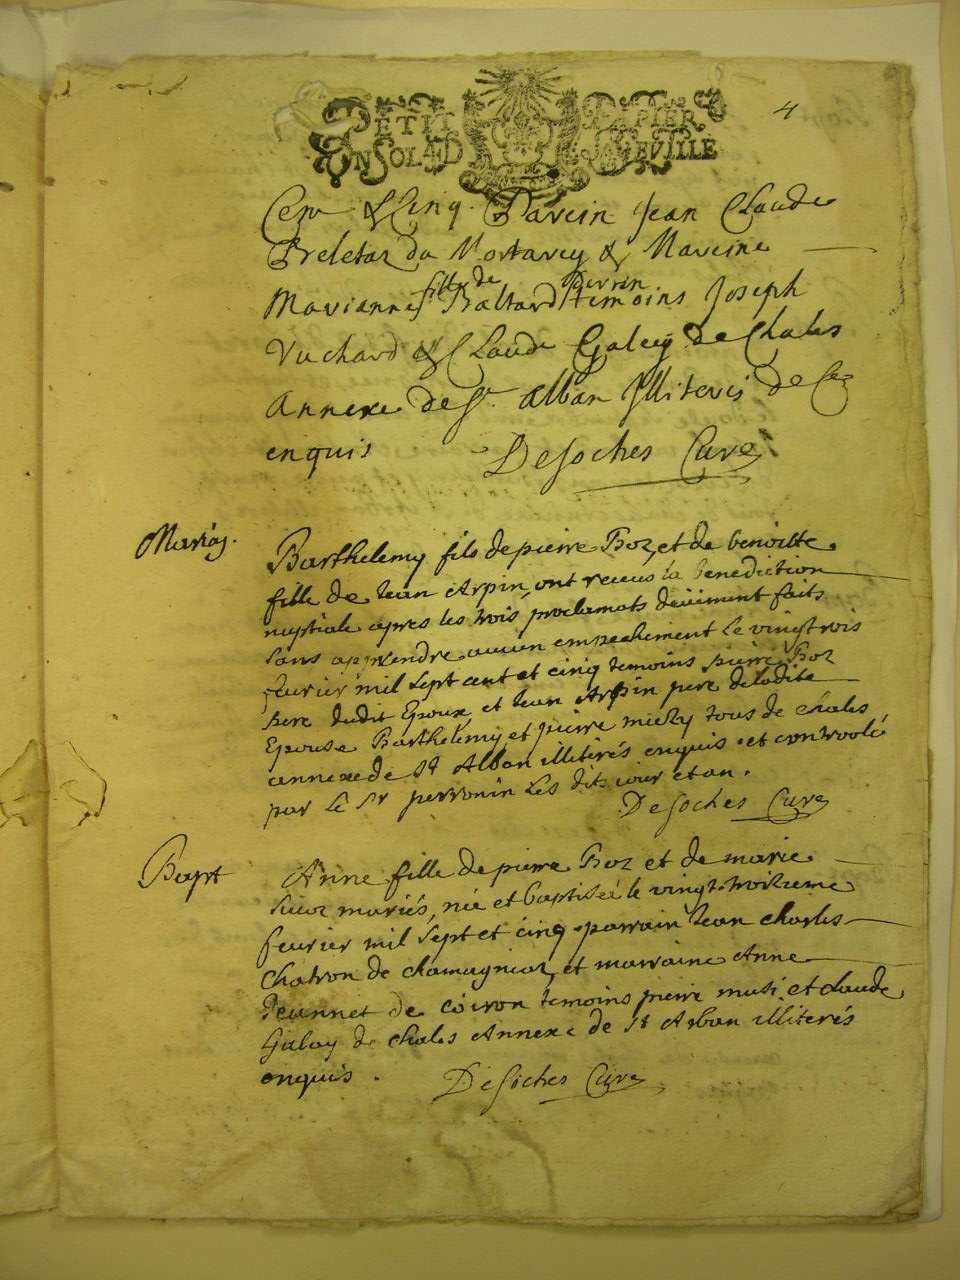 4
PETIT PAPIER
UN SOL 4 D LA FEUILLE
Cent & Cinq Parein Jean Claude
Preletaz du & Mareine
fille de Perrin
Marianne Baltard Temoins Joseph
Vuchard & Claude Galey de Chales
annexe de St alban Illiterés de ce
enquis Desoches Curé
Mariag.
Barthelemy fils de pierre Boz, et de benoitte
fille de Jean Arpin, ont receus la benediction
nuptiale apres les trois proclamats deüement faits
sans apprendre aucun empechement le vingt trois
feurier mil sept cent et cinq temoins pierre Boz
pere dudit Epoux, et Jean Arpin pere deladite
Epouse Barthelemy, et pierre tous de chales
annexe de St Alban illiterés enquis. et controolé
par le Sr perronin les dits jour et an.
Desoches Curé
Bapt
Anne fille de pierre Boz et de marie
mariés, née et baptisée le vingt-troizieme
feurier mil sept et cinq. parrain Jean charles
chatron de chamagnieu, et marraine Anne
Jeannet de temoins pierre musi, et claude
Galay de chales Annexe de St Alban illiterés
enquis. Desoches Curé